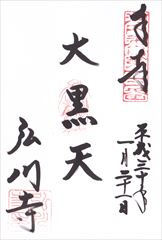 奉拝
平成三十年
一月二十一日
大黒天
弘川寺